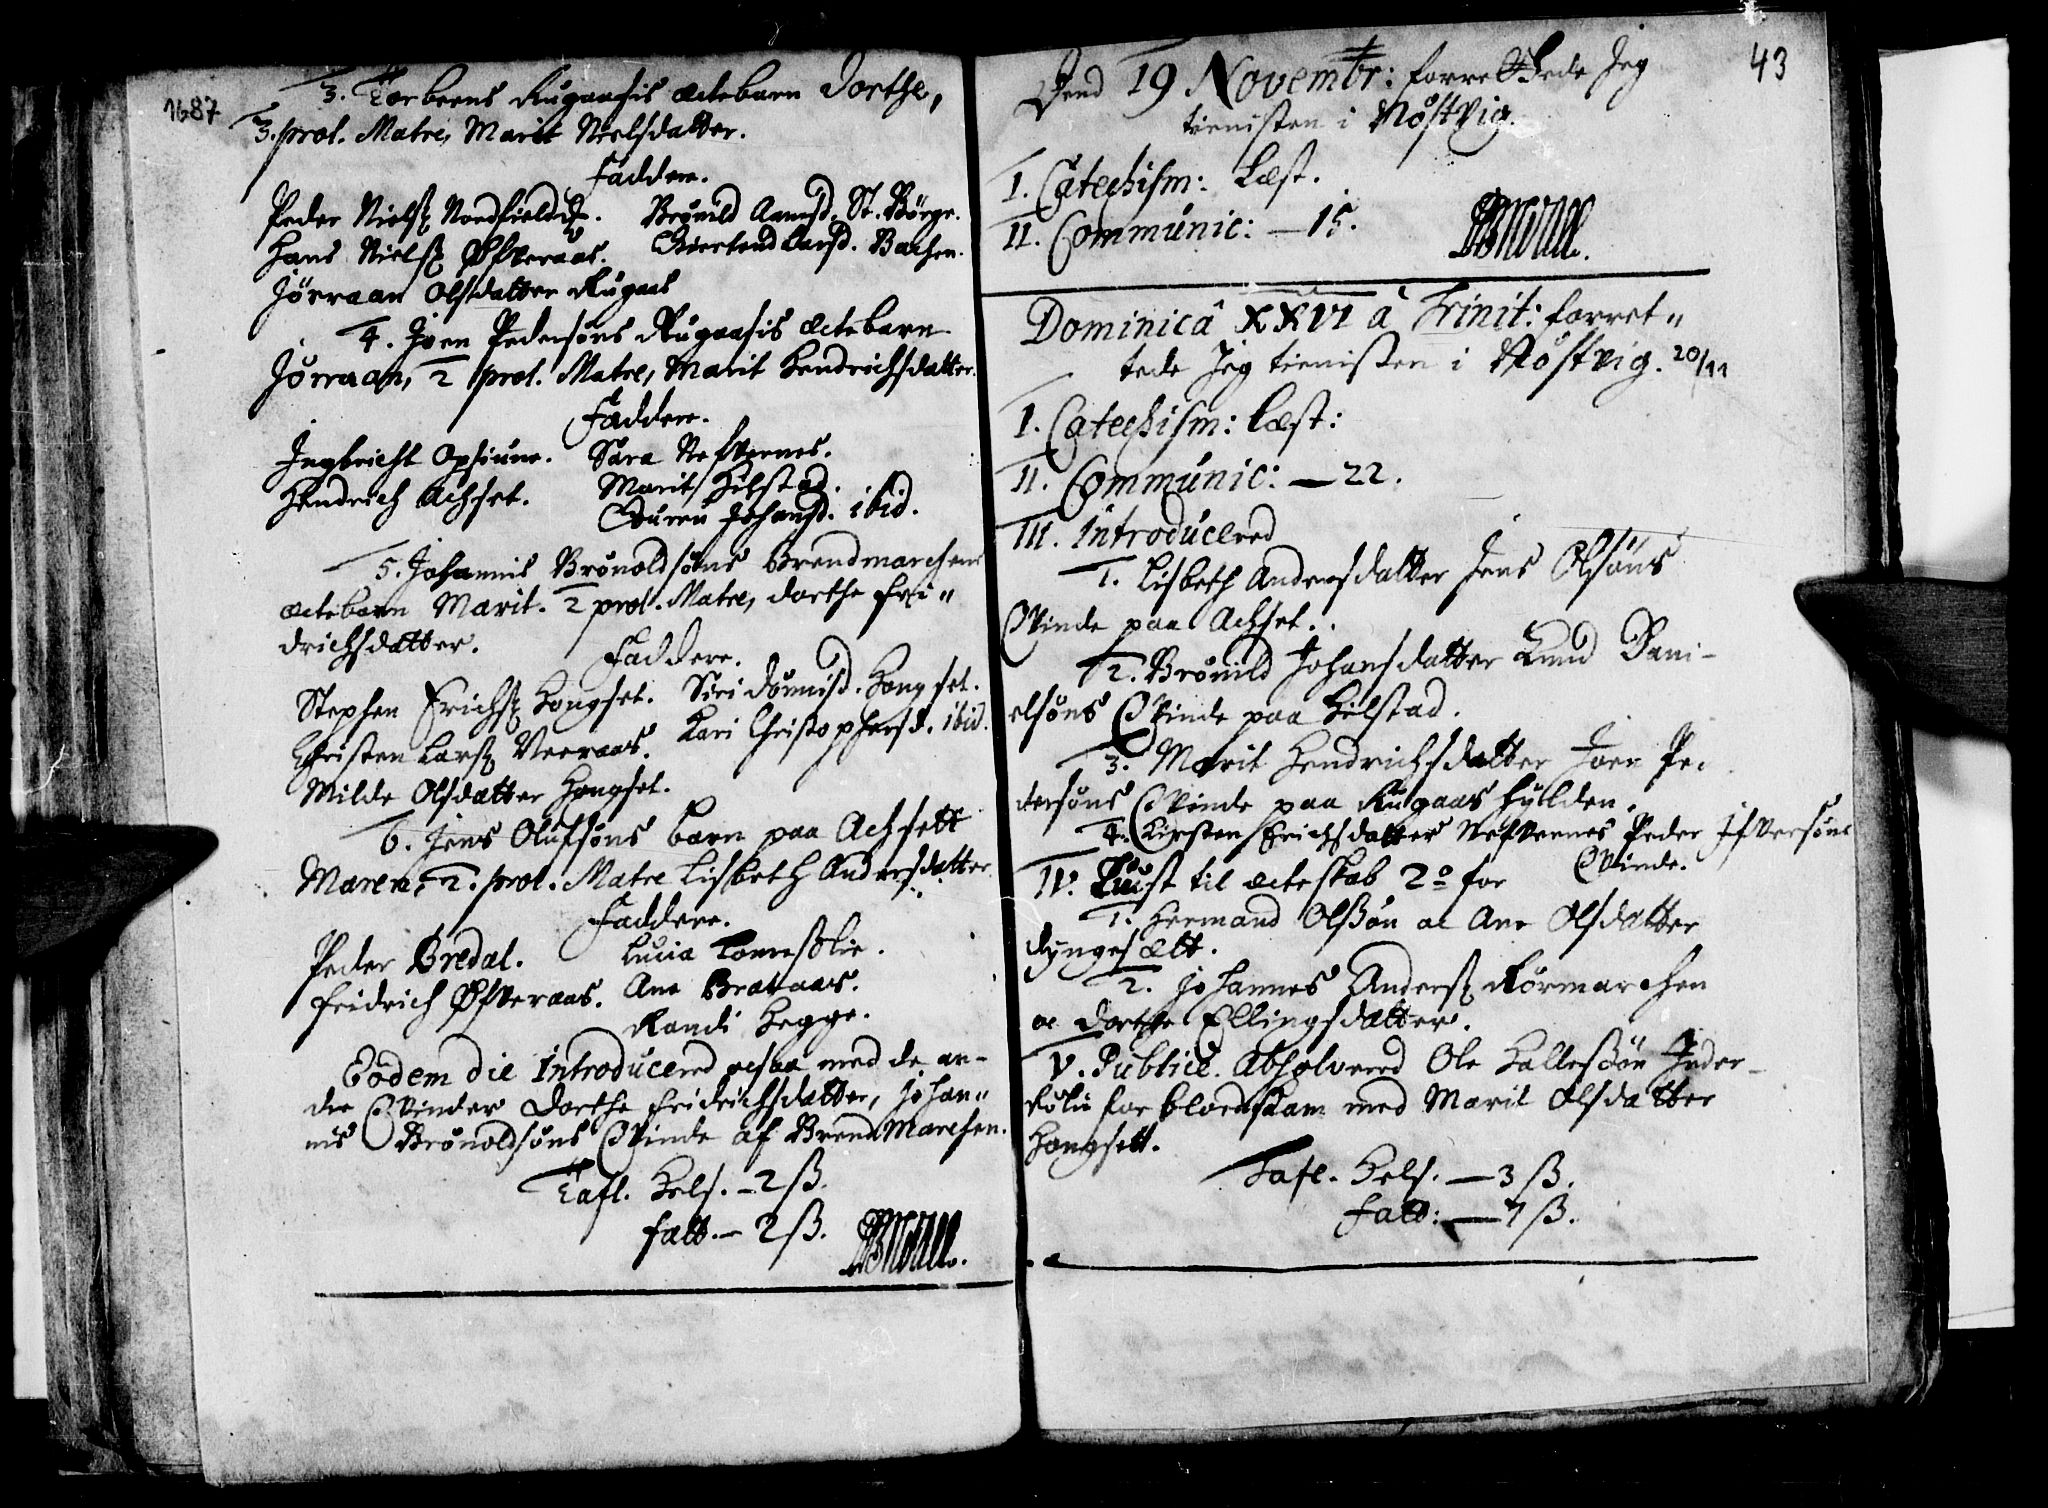 1687
3. Torberns Rugaasis ectebarn Dorthe,
3. prol. Matre, Marit Nielsdatter.
Faddere.
Peder Nielsø Nordfieldis. Brønild Aamisd. St. Børge.
Hans Nielsø Øfveraas. Giertrud Larsd. Bachen.
Jørraan Olsdatter Rugaas
4. Joen Pedersøns Rugaasis ectebarn
Jørraan, 2 prol. Matre, Marit Hendrichsdatter.
Faddere.
Ingbricht Opsiune. Sara Nesvernes.
Hendrich Achset. Marit Hilstad.
Guren Johansd. ibid.
5. Johannis Brønoldsøns Brendmarchens
ectebarn Marit. 2 prol. Matre, Dorthe Fri"
drichsdatter.
Faddere.
Stephen Erichsø Hougset. Siri Dønnisd. Hougset.
Christen Larsø Veeraas. Kari Christophersd. ibid.
Milde Olsdatter Hougset.
6. Jens Olufsøns barn paa Achsett
Maren, 2. prol. Matre Lisbeth Andersdatter.
Faddere.
Peder Bredal. Lucia Tomesolie.
Fridrich Øfveraas. Ane Brataas.
Randi Hegge.
Eodem die Introducered ocsaa med de an-
dre Qvinder Dorthe Fridrichsdatter, Johan"
nis Brønoldsøns Qvinde af Brendmarchen.
Tafl. Hels. - 2 ß.
Fatt. - 2 ß.
43
Dend 19 Novembr: forrettede Jeg
tienisten i Nøstvig.
I. Catechism: Læst.
II. Communic: — 15.
Dominica XXVI à Trinit: forret"
tede Jeg tienisten i Nøstvig. 20/11
I. Catechism: Læst:
II. Communic: — 22.
III. Introducered
1. Lisbeth Andersdatter Jens Olsøns
Qvinde paa Achset.
2. Brønild Johansdatter Knud Dani-
elsøns Qvinde paa Hilstad.
3. Marit Hendrichsdatter Joen Pe-
dersøns Qvinde paa Rugaas Fylden.
4. Kirsten Erichsdatter Nesvernes Peder Ifversøns
Qvinde.
IV. Liust til ecteskab 2º for
1. Hermand Olsøn oc Ane Olsdatter
Ryngesætt.
2. Johannes Andersø Rørmarchen
oc Dorthe Ellingsdatter.
V. Publicè. Absolvered Ole Hallesøn Inder-
Rolie for blodskam med Marit Olsdatter
Hougsett.
Tafl. Hels. — 3 ß.
Fatt: — 7 ß.